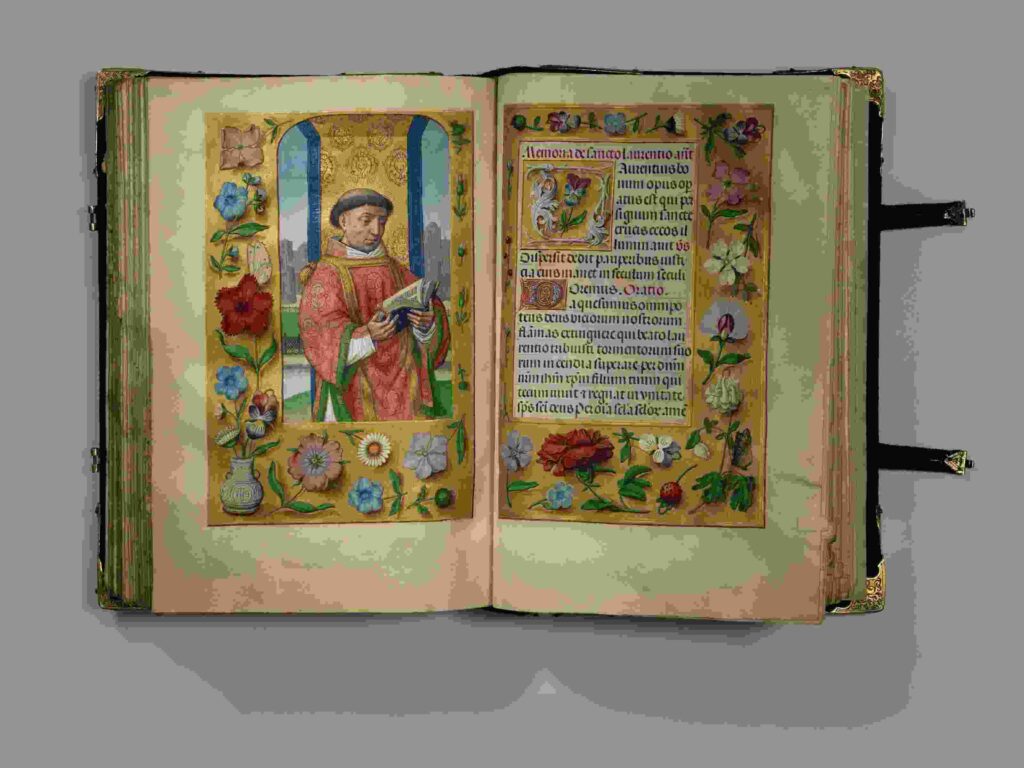 Memoria de sancto laurentio añt
Laurentius bo
num opus op
atus est qui p
signum sancte
crucis cecos il
luminavit v̄s
Dispersit dedit pauperibus iusti
cia eius manet in seculum seculi
Oremus. Oratio.
Da quesumus omnipo
tens deus viciorum nostrorum
flāmas extinguere qui beato lau
rentio tribuisti tormentorum suo
rum incendia superare per dñm
nr̄m ihm xp̄m filium tuum qui
tecum vivit et regnat in unitate
sp̄s sc̄i deus Per oīa sc̄la sc̄lor amē